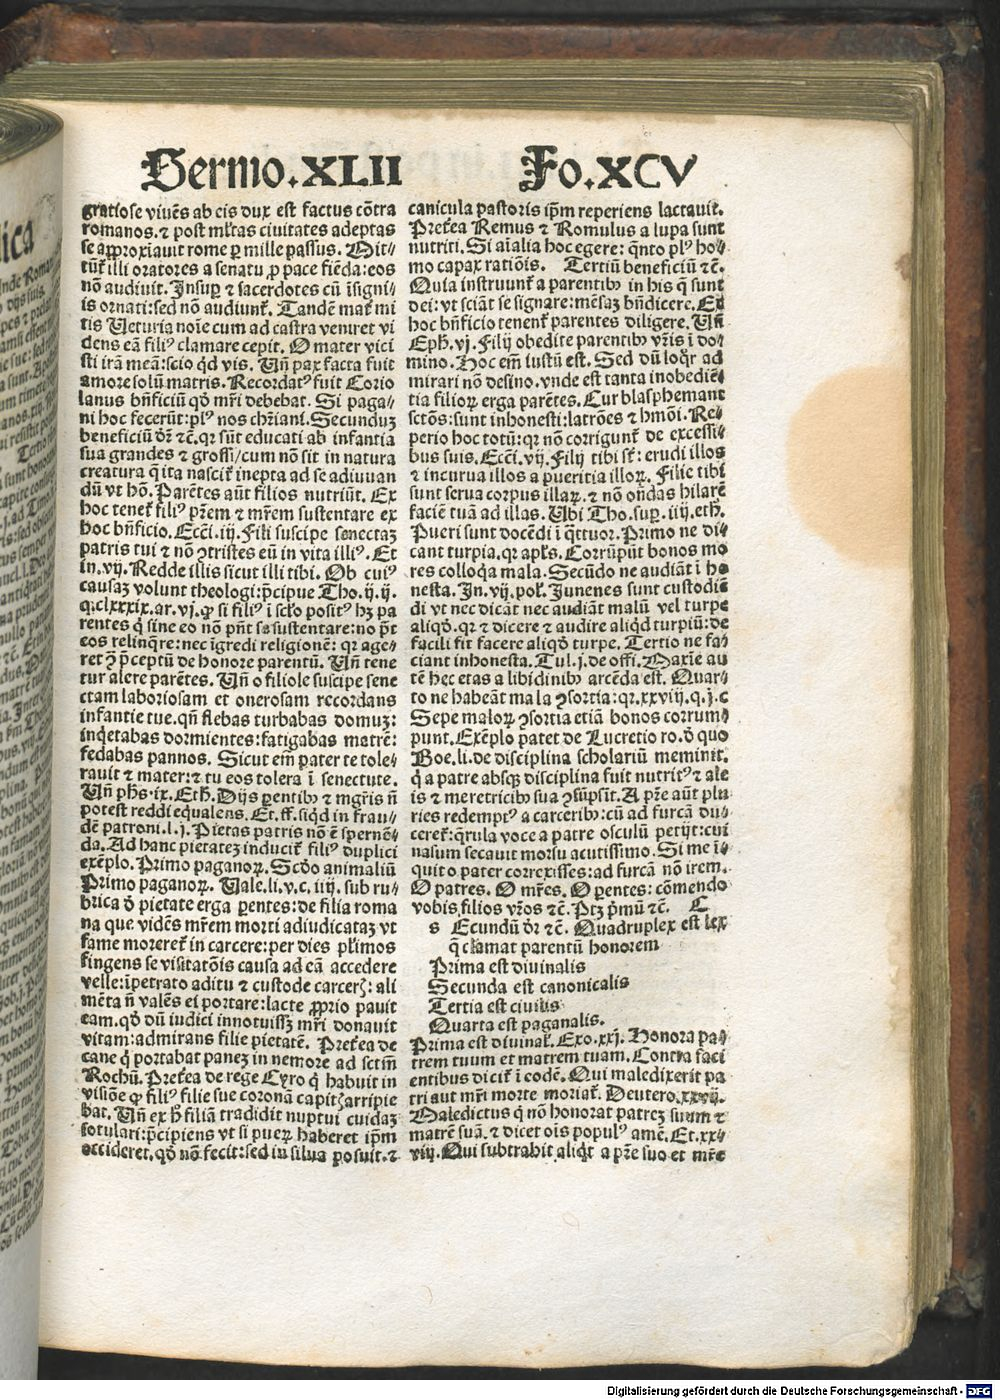 Sermo.XLII Fo.XCV
gratiose viuẽs ab eis dux est factus cõtra
romanos.⁊ post ml̃tas ciuitates adeptas
se aꝓꝓxĩauit rome ꝑ mille passus. Mit⸗
tũt᷑ illi oratores a senatu ꝓ pace fiẽda:eos
nõ audiuit. Insuꝑ ⁊ sacerdotes cũ ĩsigni⸗
is ornati:sed nõ audiunt᷑. Tandẽ mat᷑ mi
tis Veturia noĩe cum ad castra veniret vi
dens eã filiꝰ clamare cepit. O mater vici
sti irã meã:scio qd̕ vis. Vñ pax facta fuit
amore solũ matris. Recordatꝰ fuit Corio
lanus bñficiũ qd̕ mr̃i debebat. Si paga⸗
ni hoc fecerũt:plꝰ nos chr̃iani. Secunduz
beneficiũ dr̃ ⁊c̃.qr sũt educati ab infantia
sua grandes ⁊ grossi/cum nõ sit in natura
creatura q̃ ita nascit᷑ inepta ad se adiuuan
dũ vt hõ. Parẽtes aũt filios nutriũt. Ex
hoc tenet᷑ filiꝰ pr̃em ⁊ mr̃em sustentare ex
hoc bñficio. Ecci̕.iij. Fili suscipe senectaz
patris tui ⁊ nõ ꝯtristes eũ in vita illiꝰ. Et
in.vij. Redde illis sicut illi tibi. Ob cuiꝰ
causaz volunt theologi:p̃cipue Tho.ij.ij.
q.clxxxix.ar.vj.ꝙ si filiꝰ ĩ sc̃lo positꝰ hꝫ pa
rentes q̃ sine eo nõ pñt se sustentare:no p̃t
eos relinq̃re:nec ĩgredi religionẽ: qr age⸗
ret ꝯ̃ p̃ceptũ de honore parentũ. Vñ tene
tur alere parẽtes. Vñ o filiole suscipe sene
ctam laboriosam et onerosam recordans
infantie tue.qñ flebas turbabas domuz:
inq̃etabas dormientes:fatigabas matrẽ:
fedabas pannos. Sicut em̃ pater te tole⸗
rauit ⁊ mater:⁊ tu eos tolera ĩ senectute.
Vñ ph̕s.ix.Eth̕. Dijs ꝑentibꝰ ⁊ mg̃ris ñ
potest reddi equalens. Et.ff.siqd̕ in frau⸗
dẽ patroni.l.j. Pietas patris nõ ẽ spernẽ⸗
da. Ad hanc pietatez inducit᷑ filiꝰ duplici
exẽplo. Primo paganoꝝ. Scd̕o animaliũ
Primo paganoꝝ. Vale.li.v.c.iiij.sub ru⸗
brica d̕ pietate erga ꝑentes:de filia roma
na que vidẽs mr̃em morti adiudicataz vt
fame moreret᷑ in carcere:per dies pl̃imos
fingens se visitatõis causa ad eã accedere
velle:ĩpetrato aditu ⁊ custode carceꝝ: ali
mẽta ñ valẽs ei portare:lacte ꝓprio pauit
eam.qd̕ dũ iudici innotuissꝫ mr̃i donauit
vitam:admirans filie pietatẽ. Pret̕ea de
cane q̃ portabat panez in nemore ad sctm̃
Rochũ. Pret̕ea de rege Cyro q̃ habuit in
visiõe ꝙ filiꝰ filie sue coronã capitꝭ arripie
bat. Vñ ex h̕ filiã tradidit nuptui cuidaz
sotulari:p̃cipiens vt si pueꝝ haberet ip̃m
occideret.qd̕ nõ fecit:sed in silua posuit.⁊
canicula pastoris ip̃m reperiens lactauit.
Pret̕ea Remus ⁊ Romulus a lupa sunt
nutriti. Si aĩalia hoc egere: q̃nto plꝰ ho⸗
mo capax ratiõis. Tertiũ beneficiũ ⁊c̃.
Quia instruunt᷑ a parentibꝰ in his q̃ sunt
dei: vt sciãt se signare: mẽsaz bñdicere. Ex
hoc bñficio tenent᷑ parentes diligere. Vñ
Eph̕.vj. Filij obedite parentibꝰ vr̃is ĩ do⸗
mino. Hoc em̃ iustũ est. Sed dũ loq̃r ad
mirari nõ desino.vnde est tanta inobediẽ⸗
tia filioꝝ erga parẽtes. Cur blasphemant
sctõs:sunt inhonesti:latrões ⁊ hm̃oi. Re⸗
perio hoc totũ:qr nõ corrigunt᷑ de excessi⸗
bus suis. Ecci̕.vij. Filij tibi st̃: erudi illos
⁊ incurua illos a pueritia illoꝝ. Filie tibi
sunt serua corpus illaꝝ.⁊ nõ oñdas hilarẽ
faciẽ tuã ad illas. Vbi Tho.suꝑ.iiij.eth̕.
Pueri sunt docẽdi ĩ q̃ttuor. Primo ne di⸗
cant turpia.qr apl̕s. Corrũpũt bonos mo
res colloq̃a mala. Secũdo ne audiãt ĩho
nesta. In.vij.pol̕. Iuuenes sunt custodiẽ
di vt nec dicãt nec audiãt malũ vel turpe
aliqd̕.qr ⁊ dicere ⁊ audire aliqd̕ turpiũ:de
facili fit facere aliqd̕ turpe. Tertio ne fa⸗
ciant inhonesta. Tul.j.de offi. Maxĩe au
tẽ hec etas a libidinibꝰ arcẽda est. Quar⸗
to ne habeãt mala ꝯsortia:qr.xxviij.q.j.c
Sepe maloꝝ ꝯsortia etiã bonos corrum⸗
punt. Exẽplo patet de Lucretio ro.d̕ quo
Boe.li.de disciplina scholariũ meminit.
q̃ a patre absqꝫ disciplina fuit nutritꝰ ⁊ ale
is ⁊ meretricibꝰ sua ꝯsũpsit. A pr̃e aũt plu
ries redemptꝰ a carceribꝰ:cũ ad furcã du⸗
ceret᷑:q̃rula voce a patre osculũ petijt:cui
nasum secauit morsu acutissimo. Si me ĩ⸗
quit o pater correxisses:ad furcã nõ irem.
O patres. O mr̃es. O ꝑentes: cõmendo
vobis filios vr̃os ⁊c̃. Ptꝫ p̃mũ ⁊c̃. C
s Ecundũ dr̃ ⁊c̃. Quadruplex est lex
q̃ clamat parentũ honorem
Prima est diuinalis
Secunda est canonicalis
Tertia est ciuilis
Quarta est paganalis.
Prima est diuinal̕. Exo.xxj. Honora pa⸗
trem tuum et matrem tuam. Contra faci
entibus dicit᷑ ĩ eodẽ. Qui maledixerit pa
tri aut mr̃i morte moriat᷑. Deutero.xxvij.
Maledictus q̃ nõ honorat patrez suum ⁊
matrẽ suã.⁊ dicet ois populꝰ amẽ. Et.xx⸗
viij. Qui subtrahit aliqd̕ a pr̃e suo et mr̃e
Digitalisierung gefördert durch die Deutsche Forschungsgemeinschaft - DFG